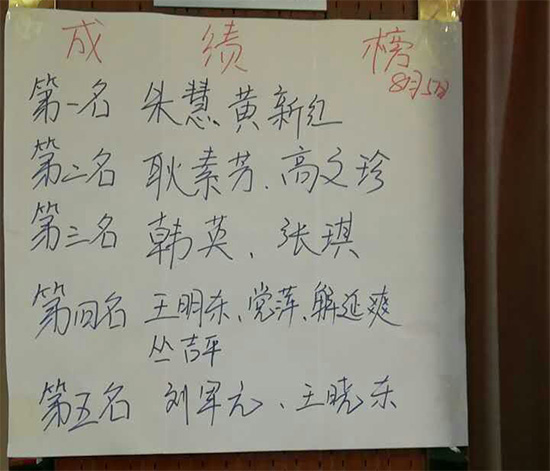 成绩榜
8月5日
第一名 朱慧黄新红
第二名 耿素芳、高文珍
第三名 韩英、张琪
第四名 王明东、党萍、解延爽
丛吉平
第五名 刘军元、王晓东